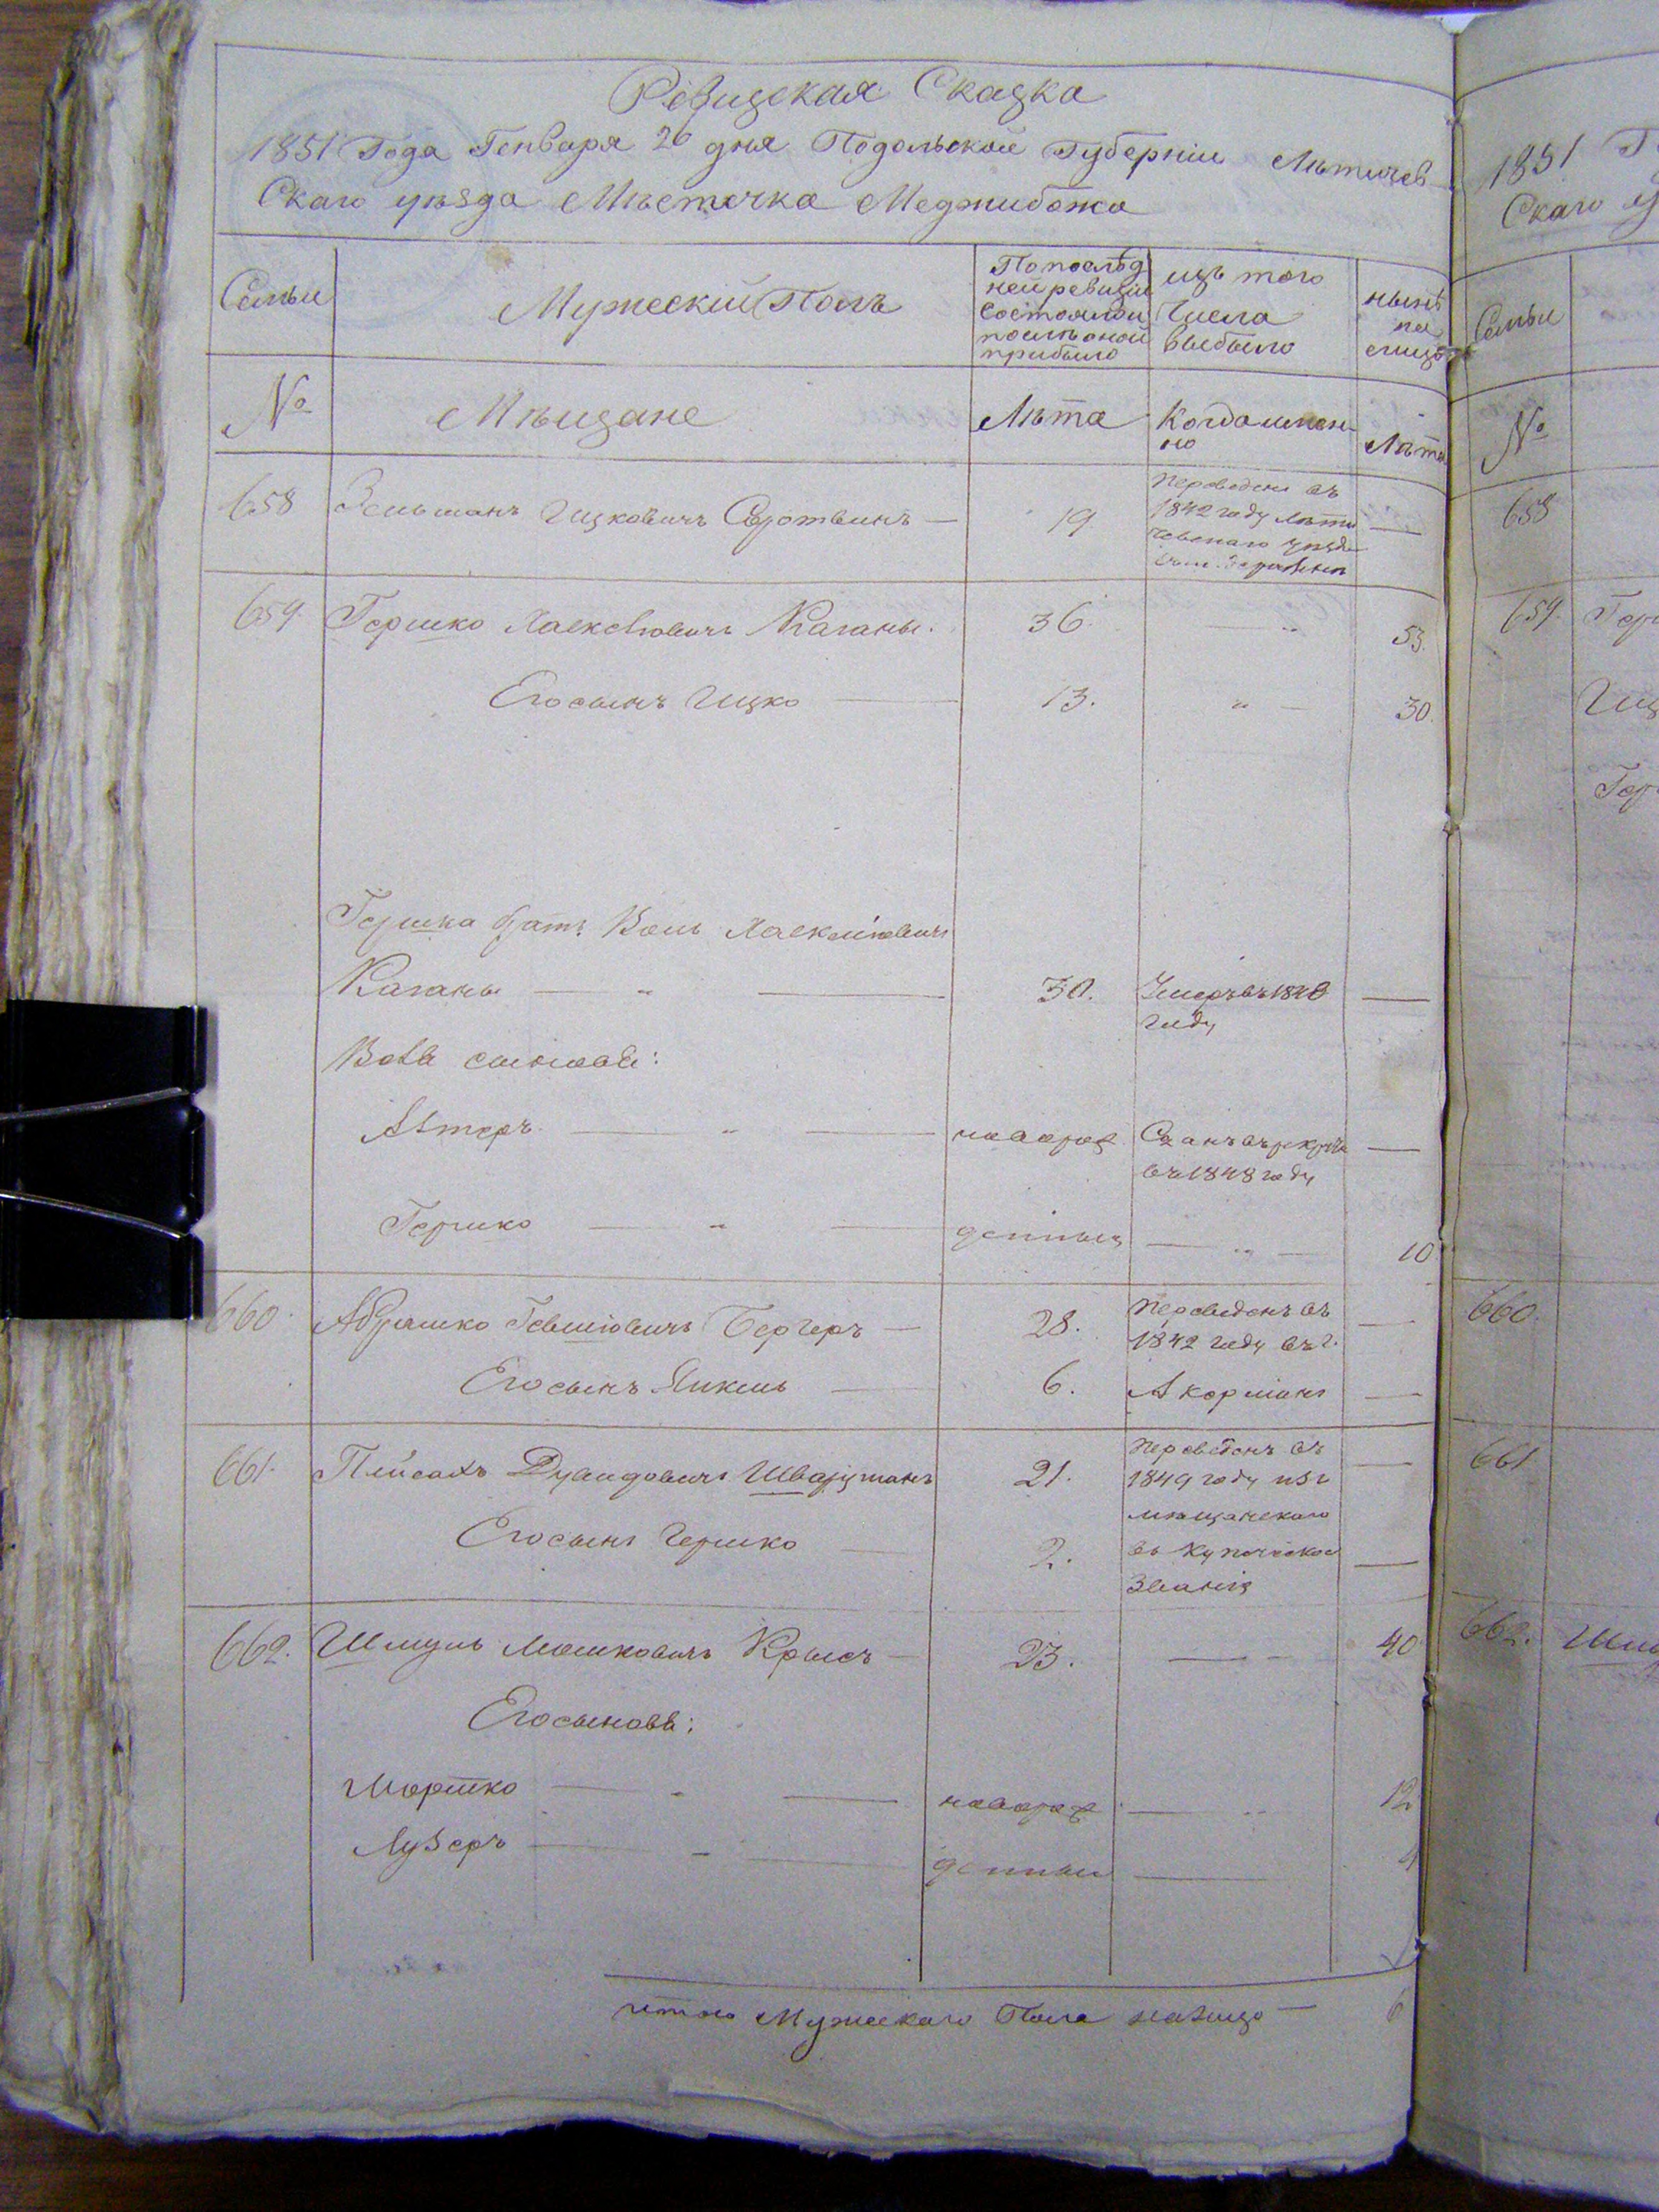 Ревизская Сказка
1851 Года Генваря 26 дня Подольской Губернии Лѣтичев
Скаго уѣзда Мѣстечка Меджибожа
Семьи
Мужескій Полъ
По послѣд
ней ревизіи
состояло и
послѣ оной
прибыло
изъ того
Числа
выбыло
нынѣ
на
лицо
№
Мѣщане
Лѣта
Когда имен
но
Лѣта
658 Зельманъ Ицковичъ 19
Переведенъ въ
1842 году Лѣти
чевскаго уѣзда
659. Гершко Каганъ. 36. 53.
Его сынъ Ицко 13. " 30.
Гершка братъ
Каганъ " 30. Умеръ въ 1840
году
сыновья:
" новорож Сданъ въ рекруты
въ 1848 году
Гершко " денный " 10
660. Абрашко Бергеръ 28. Переведенъ въ
1842 году въ г.
Его сынъ Янкель 6. Акерманъ
661. Пейсахъ Дувидовичъ Шварцманъ 21. Переведенъ въ
1849 году изъ
мѣщанскаго
Его сынъ Гершко 2. въ Купеческое
Званіе
662. Шмуль Мошковичъ Крысъ 23. 40
Его сыновья:
Мортко новорож " 12
Лузеръ денный
итого Мужескаго Пола налицо 6
1851
Скаго
Семьи
№
658
659. Гер
Иц
Гер
660.
661
662. Шму